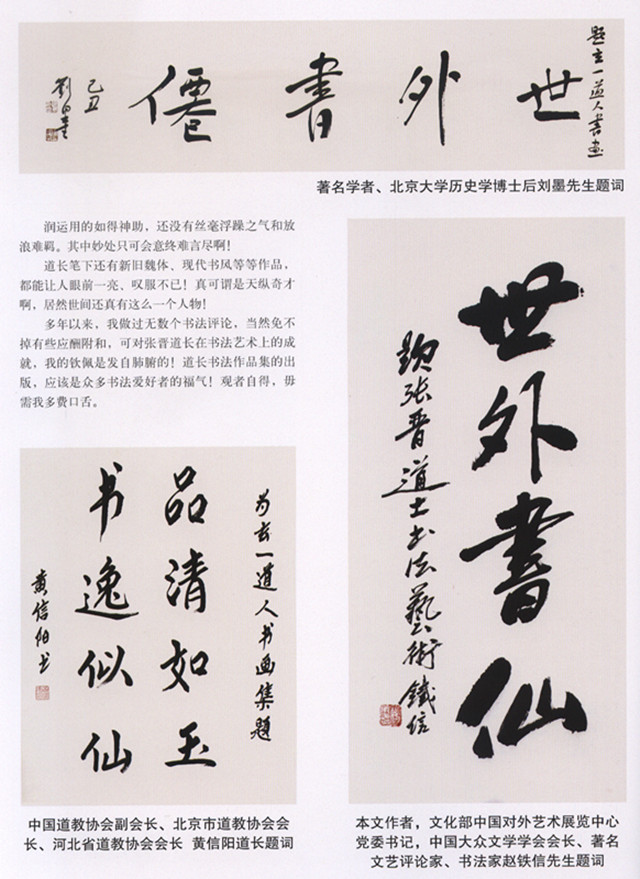 题玄一道人書画
世外書僊
己丑
劉墨
著名学者、北京大学历史学博士后刘墨先生题词
润运用的如得神助，还没有丝毫浮躁之气和放
浪难羁。其中妙处只可会意终难言尽啊！
道长笔下还有新旧魏体、现代书风等等作品，
都能让人眼前一亮、叹服不已！真可谓是天纵奇才
啊，居然世间还真有这么一个人物！
多年以来，我做过无数个书法评论，当然免不
掉有些应酬附和，可对张晋道长在书法艺术上的成
就，我的钦佩是发自肺腑的！道长书法作品集的出
版，应该是众多书法爱好者的福气！观者自得，毋
需我多费口舌。
为玄一道人书画集题
品清如玉
书逸似仙
黄信阳书
中国道教协会副会长、北京市道教协会会
长、河北省道教协会会长 黄信阳道长题词
世外書仙
题张晋道士书法藝術 鐵信
本文作者，文化部中国对外艺术展览中心
党委书记，中国大众文学学会会长、著名
文艺评论家、书法家赵铁信先生题词